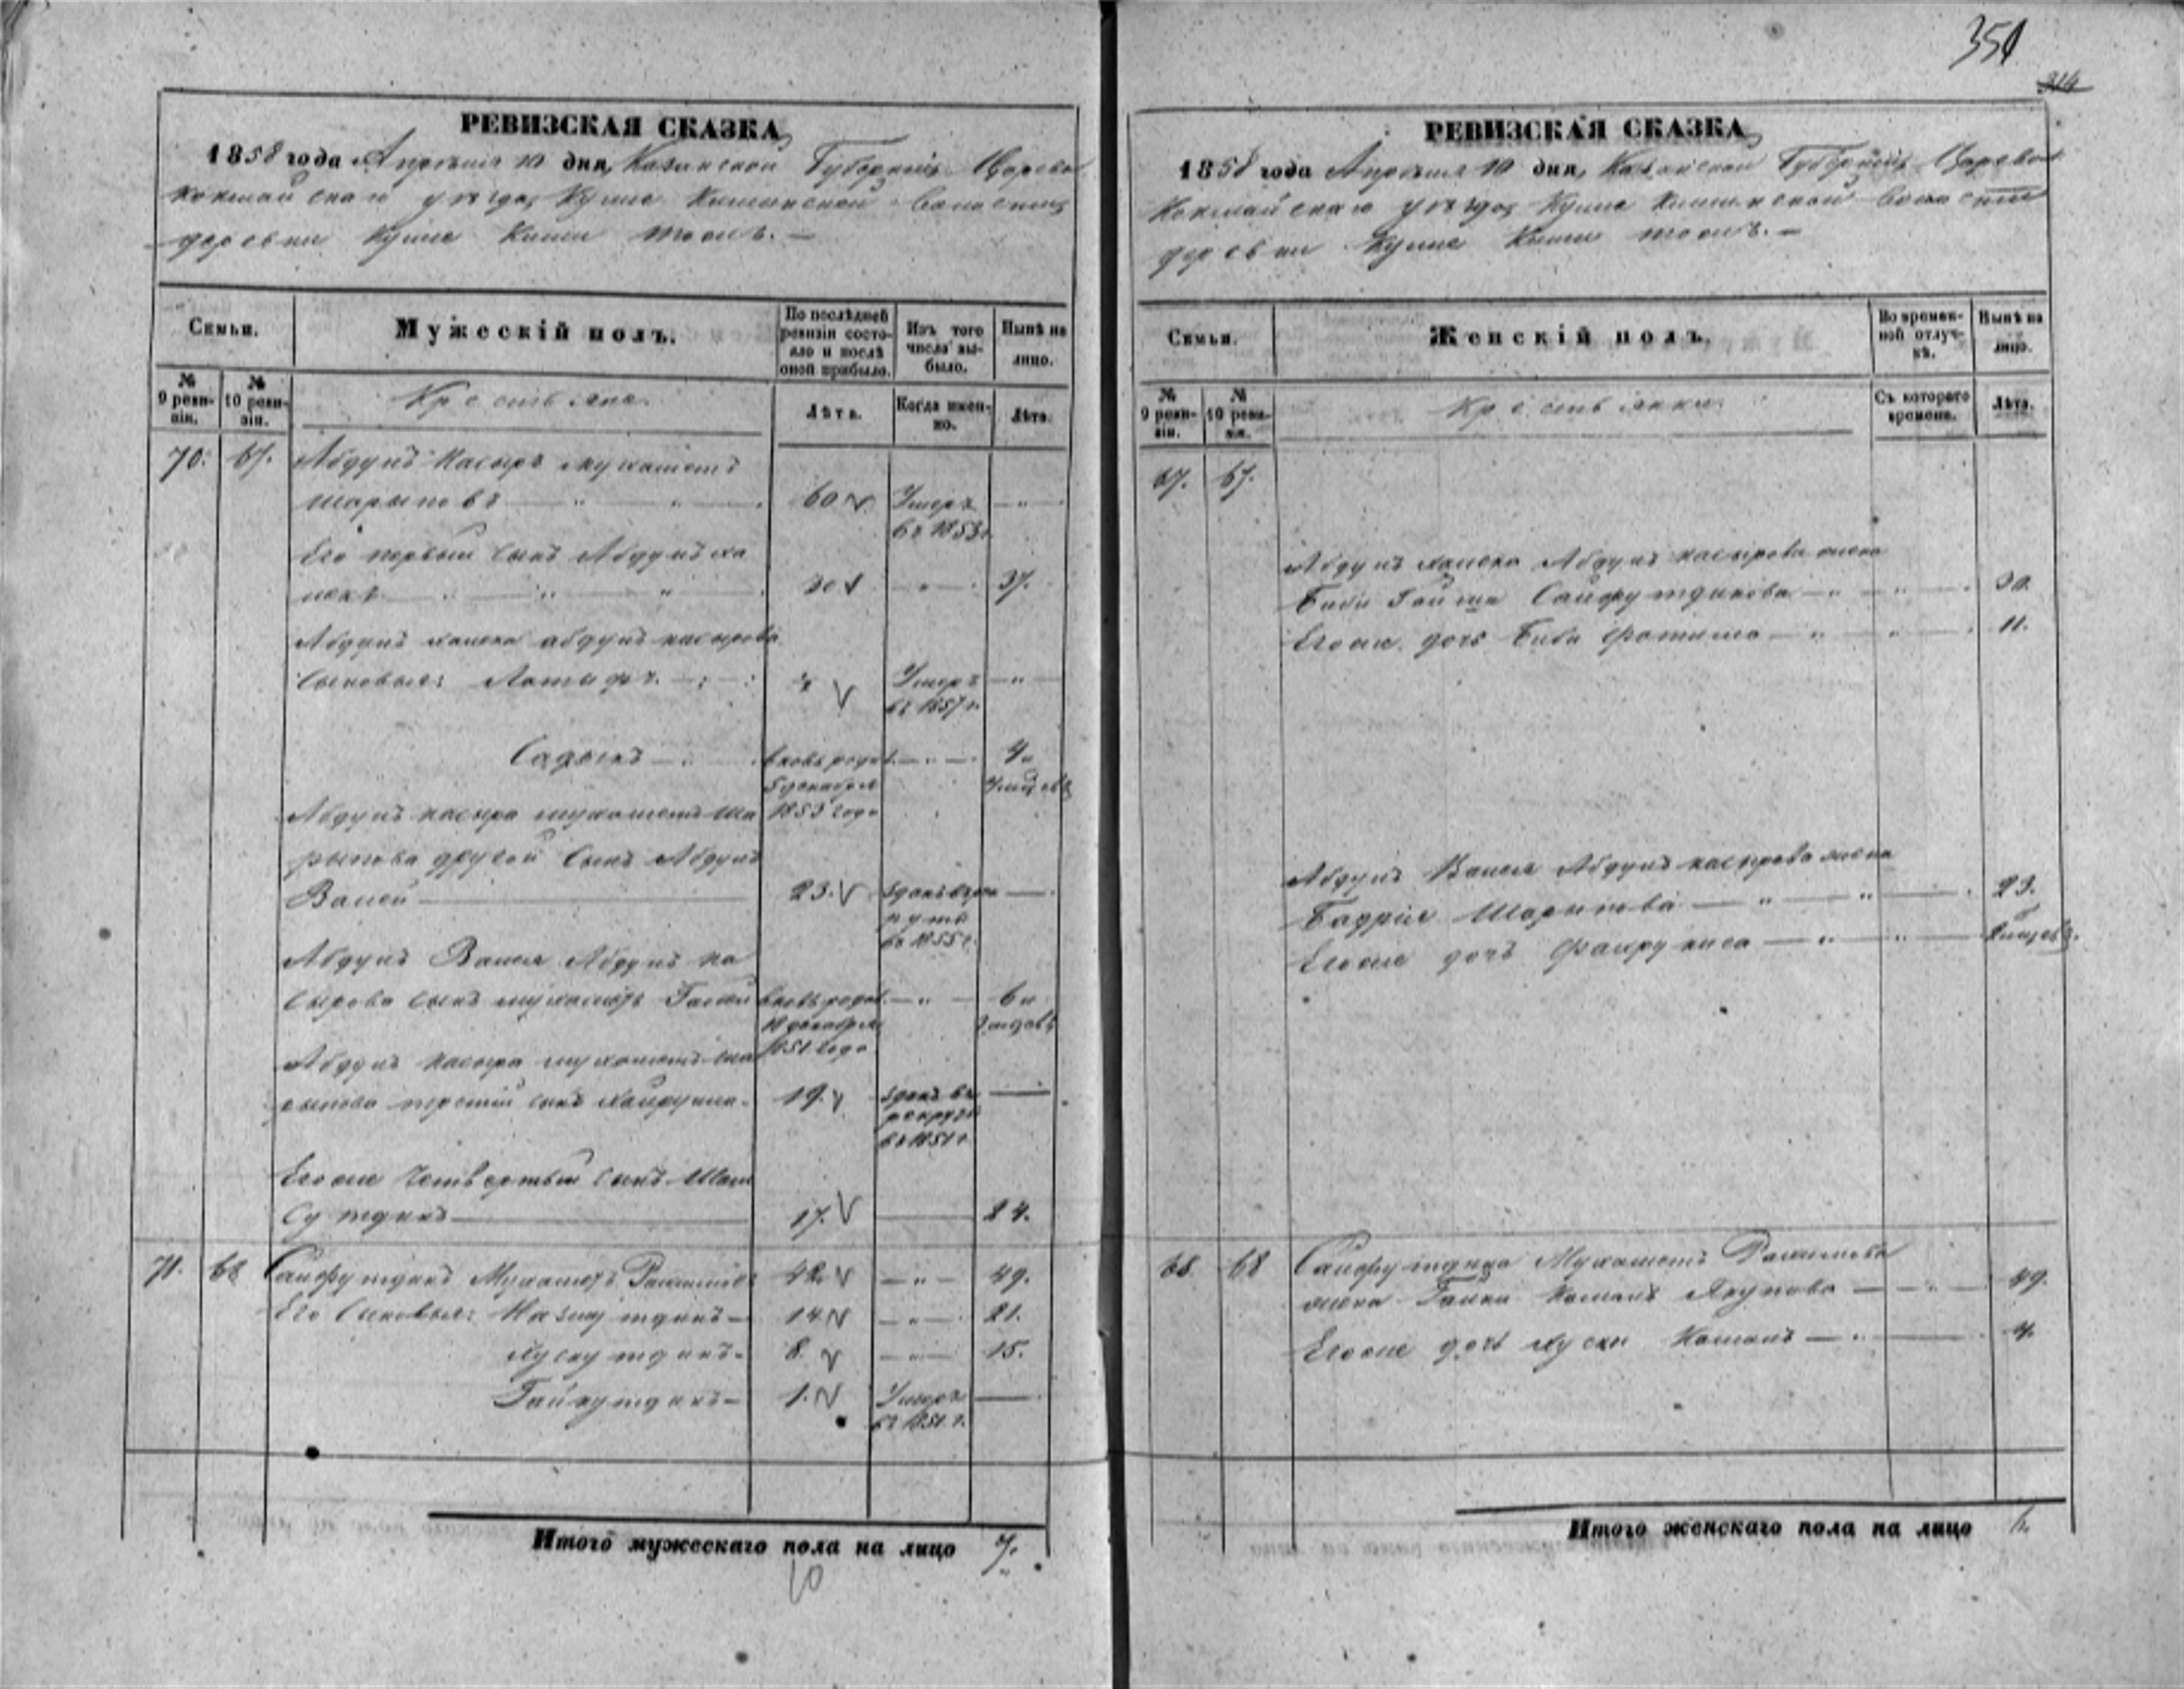 351
314
РЕВИЗСКАЯ СКАЗКА
1858 года Апреля 10 дня, Казанской Губерніи Царево
кокшайскаго уѣзда, Кулле Киминской волости,
деревни Кулле Кими тожъ. —
Семьи.
Мужескій полъ.
По послѣдней ревизіи состояло и послѣ оной прибыло.
Изъ того числа выбыло.
Нынѣ на лицо.
№ 9 ревизіи.
№ 10 ревизіи.
Крестьяне.
Лѣта.
Когда именно.
Лѣта.
70. 67. Абдулъ Насыръ Мухаметъ
Шарыповъ — 60 Умеръ —
въ 1853 г.
Его первый сынъ Абдулъ Ха
лекъ — 30 — 37.
Абдулъ Халека Абдулъ Насырова
Сыновья: Латыфъ. — Умеръ —
въ 1857 г.
Садыкъ — вновь родил. — 4 и
5 декабря
1853 года
Абдулъ Насыра Мухаметъ Ша
рыпова другой сынъ Абдулъ
Валей — 23. зданъ въ рек
руты
въ 1855 г.
Абдулъ Валея Абдулъ На
сырова сынъ Мухаметъ вновь родил. — 6 и
декабря
1851 года
Абдулъ Насыра Мухаметъ Ша
рыпова третій сынъ Хайрулла — 19. зданъ въ —
рекруты
въ 1851 г.
Его же четвертый сынъ Шам
сутдинъ — 17. — 24.
71. 68 Сайфутдинъ Мухаметъ Рахимовъ 42. — 49.
Его сыновья: Назмутдинъ — 14. — 21.
8. — 15.
Гайнутдинъ — 1. Умеръ —
въ 1851 г.
Итого мужескаго пола на лицо 7.
10
РЕВИЗСКАЯ СКАЗКА
1858 года Апреля 10 дня, Казанской Губерніи Царево
Кокшайскаго уѣзда, Кулле Киминской волости
деревни Кулле Кими тожъ. —
Семьи.
Женскій полъ.
Во временной отлучкѣ.
Нынѣ на лицо.
№ 9 ревизіи.
№ 10 ревизіи.
Крестьянки.
Съ котораго времени.
Лѣта.
67. 67.
Абдулъ Халека Абдулъ Насырова жена
Биби Гайша Сайфутдинова — 30.
Его же дочь Биби Фатима — 11.
Абдулъ Валея Абдулъ Насырова жена
Бадрія Шарыпова — 23.
Его же дочь Фахруниса —
68. 68 Сайфутдина Мухаметъ Рахимова
жена Камалъ Якупова — 49.
Его же дочь Камалъ — 4.
Итого женскаго пола на лицо